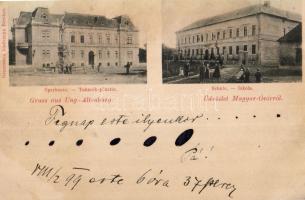 Sparkasse. — Takarék-pénztár.
Schule. — Iskola.
Gruss aus Ung.-Altenburg.
Üdvözlet Magyar-Óvárról.
Tegnap este ilyenkor . . . . .
Pá!
VIII/2 99 este 6 óra 37 perc